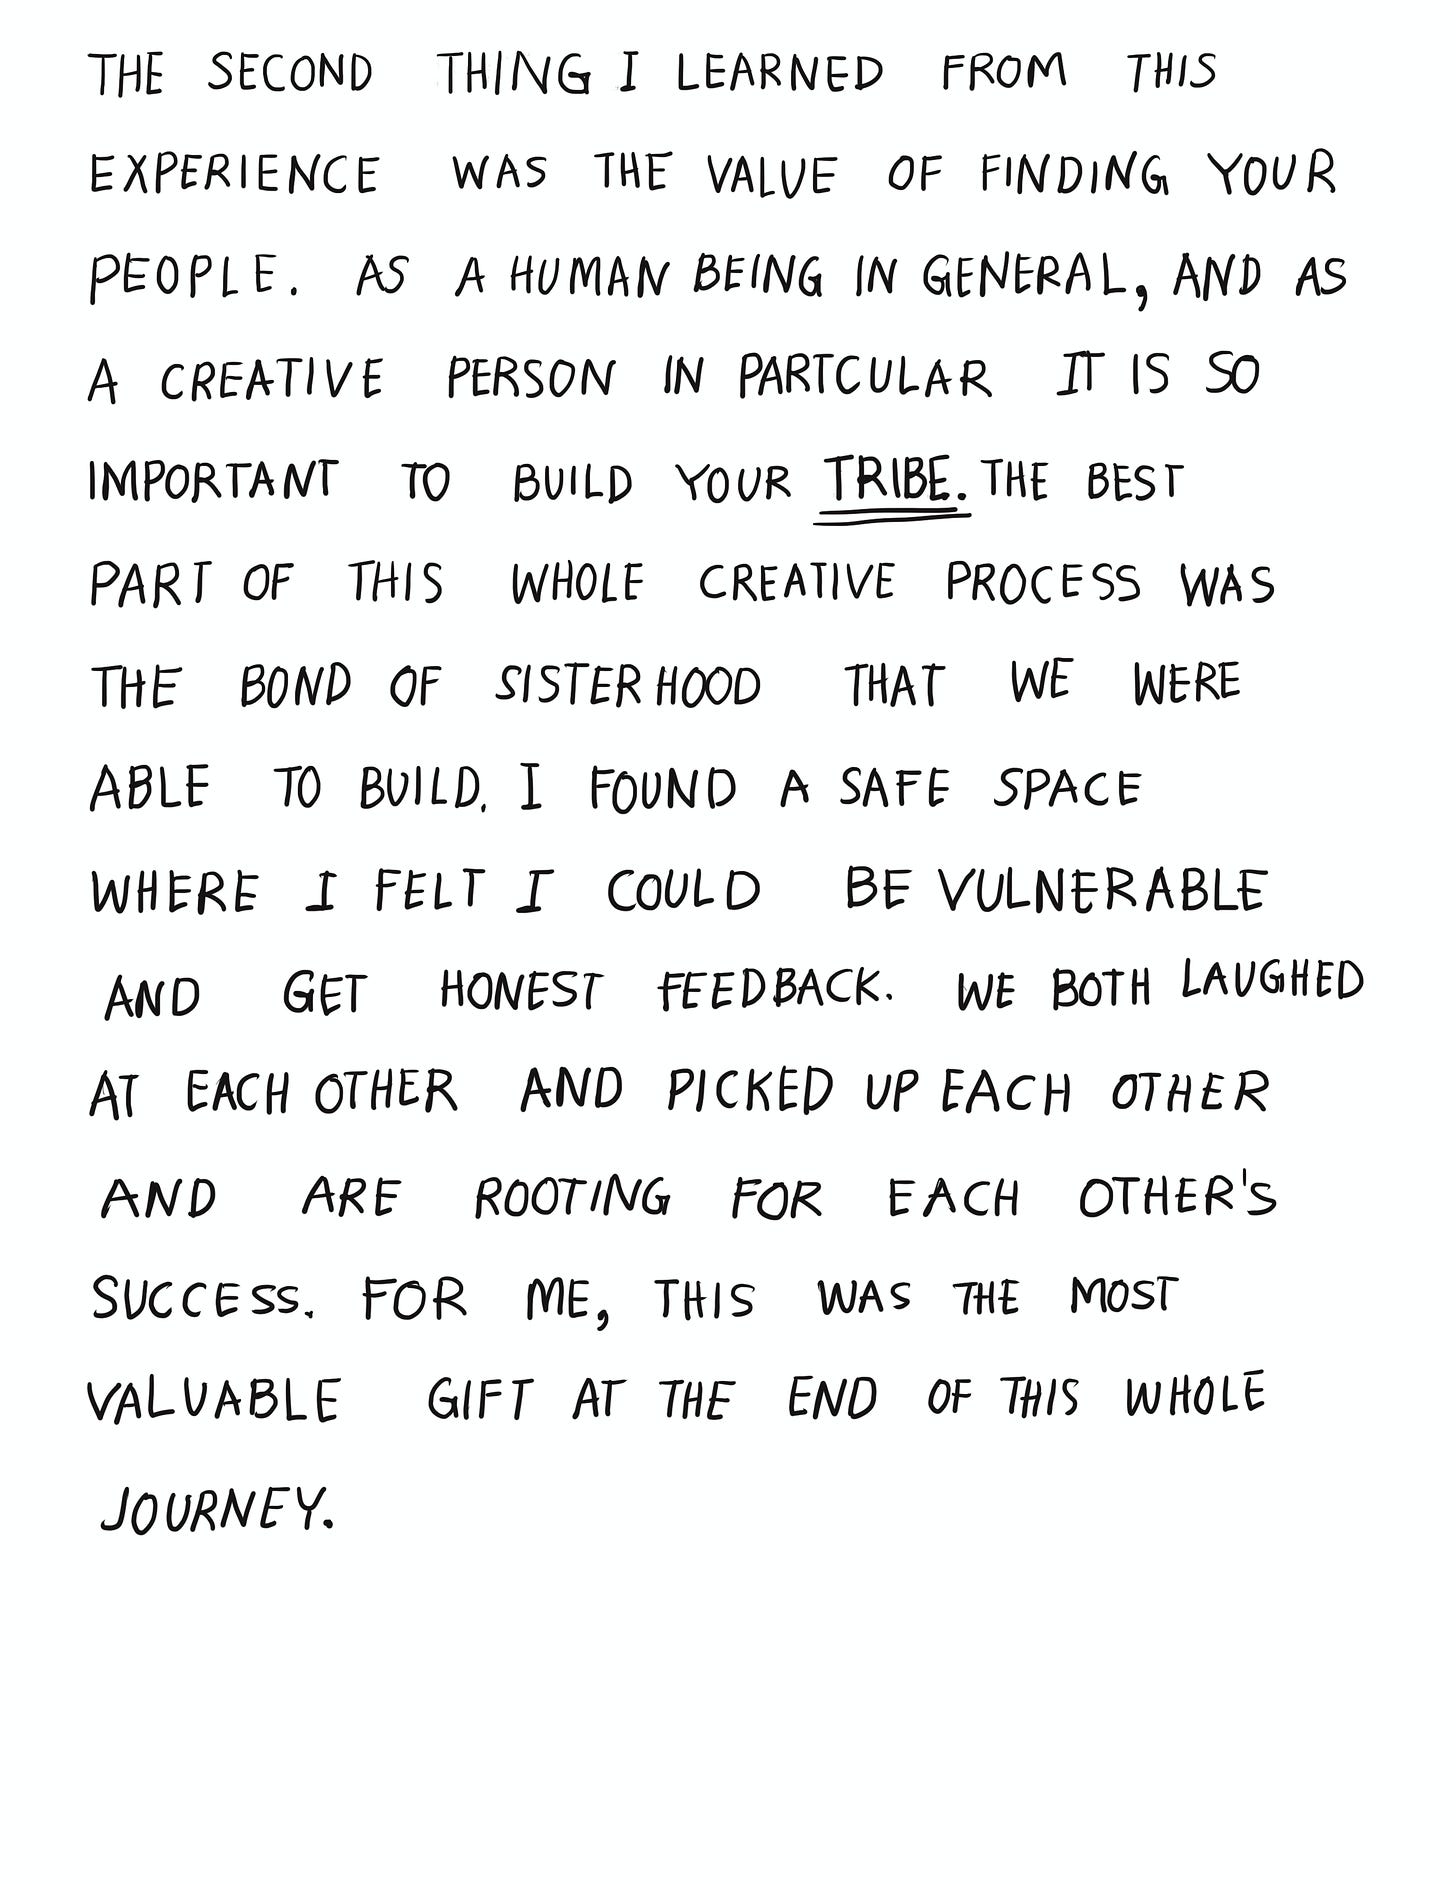 THE SECOND THING I LEARNED FROM THIS
EXPERIENCE WAS THE VALUE OF FINDING YOUR
PEOPLE. AS A HUMAN BEING IN GENERAL, AND AS
A CREATIVE PERSON IN PARTCULAR IT IS SO
IMPORTANT TO BUILD YOUR TRIBE. THE BEST
PART OF THIS WHOLE CREATIVE PROCESS WAS
THE BOND OF SISTERHOOD THAT WE WERE
ABLE TO BUILD. I FOUND A SAFE SPACE
WHERE I FELT I COULD BE VULNERABLE
AND GET HONEST FEEDBACK. WE BOTH LAUGHED
AT EACH OTHER AND PICKED UP EACH OTHER
AND ARE ROOTING FOR EACH OTHER'S
SUCCESS. FOR ME, THIS WAS THE MOST
VALUABLE GIFT AT THE END OF THIS WHOLE
JOURNEY.